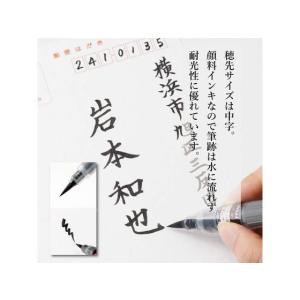 穂先サイズは中字。
顔料インキなので筆跡は水に流れず
耐光性に優れています。
郵便はがき
2410135
横浜市旭区三反
岩本和也